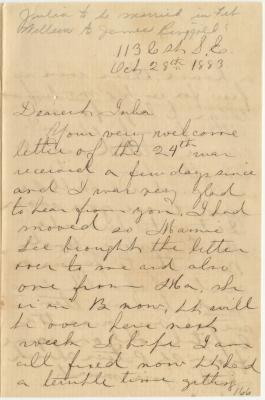 Julia to be married in Feb
William & James Ringgold's
113 C St. S.E.
Oct. 28th 1883
Dearest Julia
Your very welcome
letter of the 24th was
received a few days since
and I was very glad
to hear from you. I had
moved so Mamie
Lee brought the letter
over to me and also
one from Ma, she
is in B now, she will
be over here next
week I hope I am
all fixed now I had
a terrible time getting
166